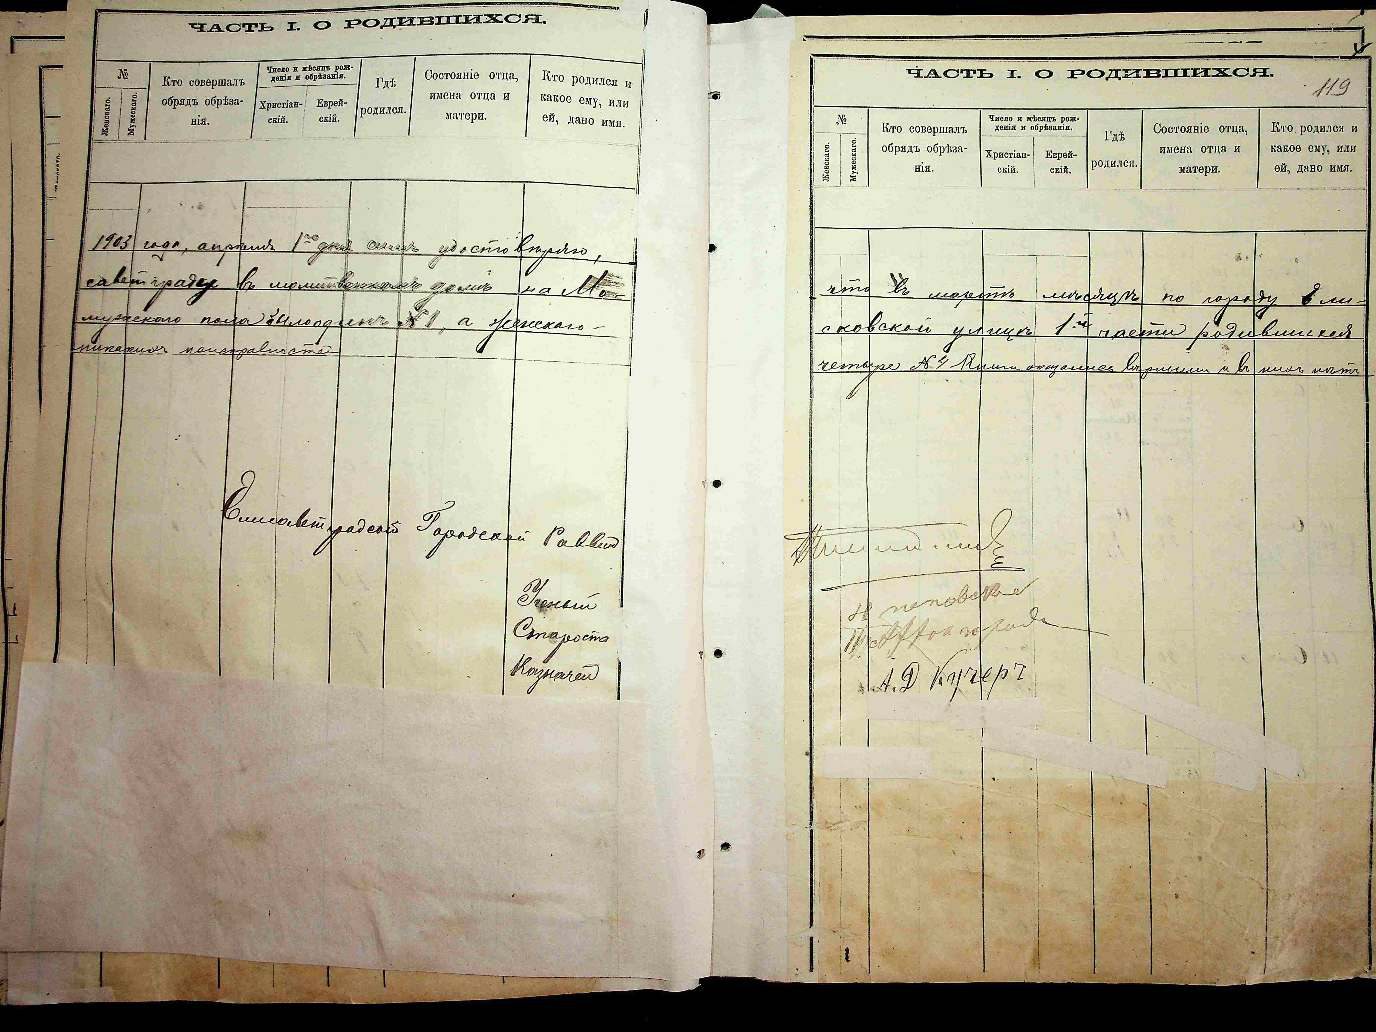 ЧАСТЬ I. О РОДИВШИХСЯ.
№
Женскаго.
Мужескаго.
Кто совершалъ
обрядъ обрѣза-
нія.
Число и мѣсяцъ рож-
денія и обрѣзанія.
Христіан-
скій.
Еврей-
скій.
Гдѣ
родился.
Состояніе отца,
имена отца и
матери.
Кто родился и
какое ему, или
ей, дано имя.
1903 года, апрѣля 1го дня симъ удостовѣряю,
саветграду въ молитвенномъ домѣ на
мужскаго пола былъ одинъ № 1, а женскаго
никакихъ
Елисаветградскій Городской Раввинъ
Ученый
Староста
Казначей
ЧАСТЬ I. О РОДИВШИХСЯ.
119
№
Женскаго.
Мужескаго.
Кто совершалъ
обрядъ обрѣза-
нія.
Число и мѣсяцъ рож-
денія и обрѣзанія.
Христіан-
скій.
Еврей-
скій.
Гдѣ
родился.
Состояніе отца,
имена отца и
матери.
Кто родился и
какое ему, или
ей, дано имя.
что въ мартѣ мѣсяцѣ по городу Ели-
сковской улицѣ 1й части родившихся
четыре № 4 Книги оказались вѣрными и въ нихъ нѣтъ
А. Д Кучеръ